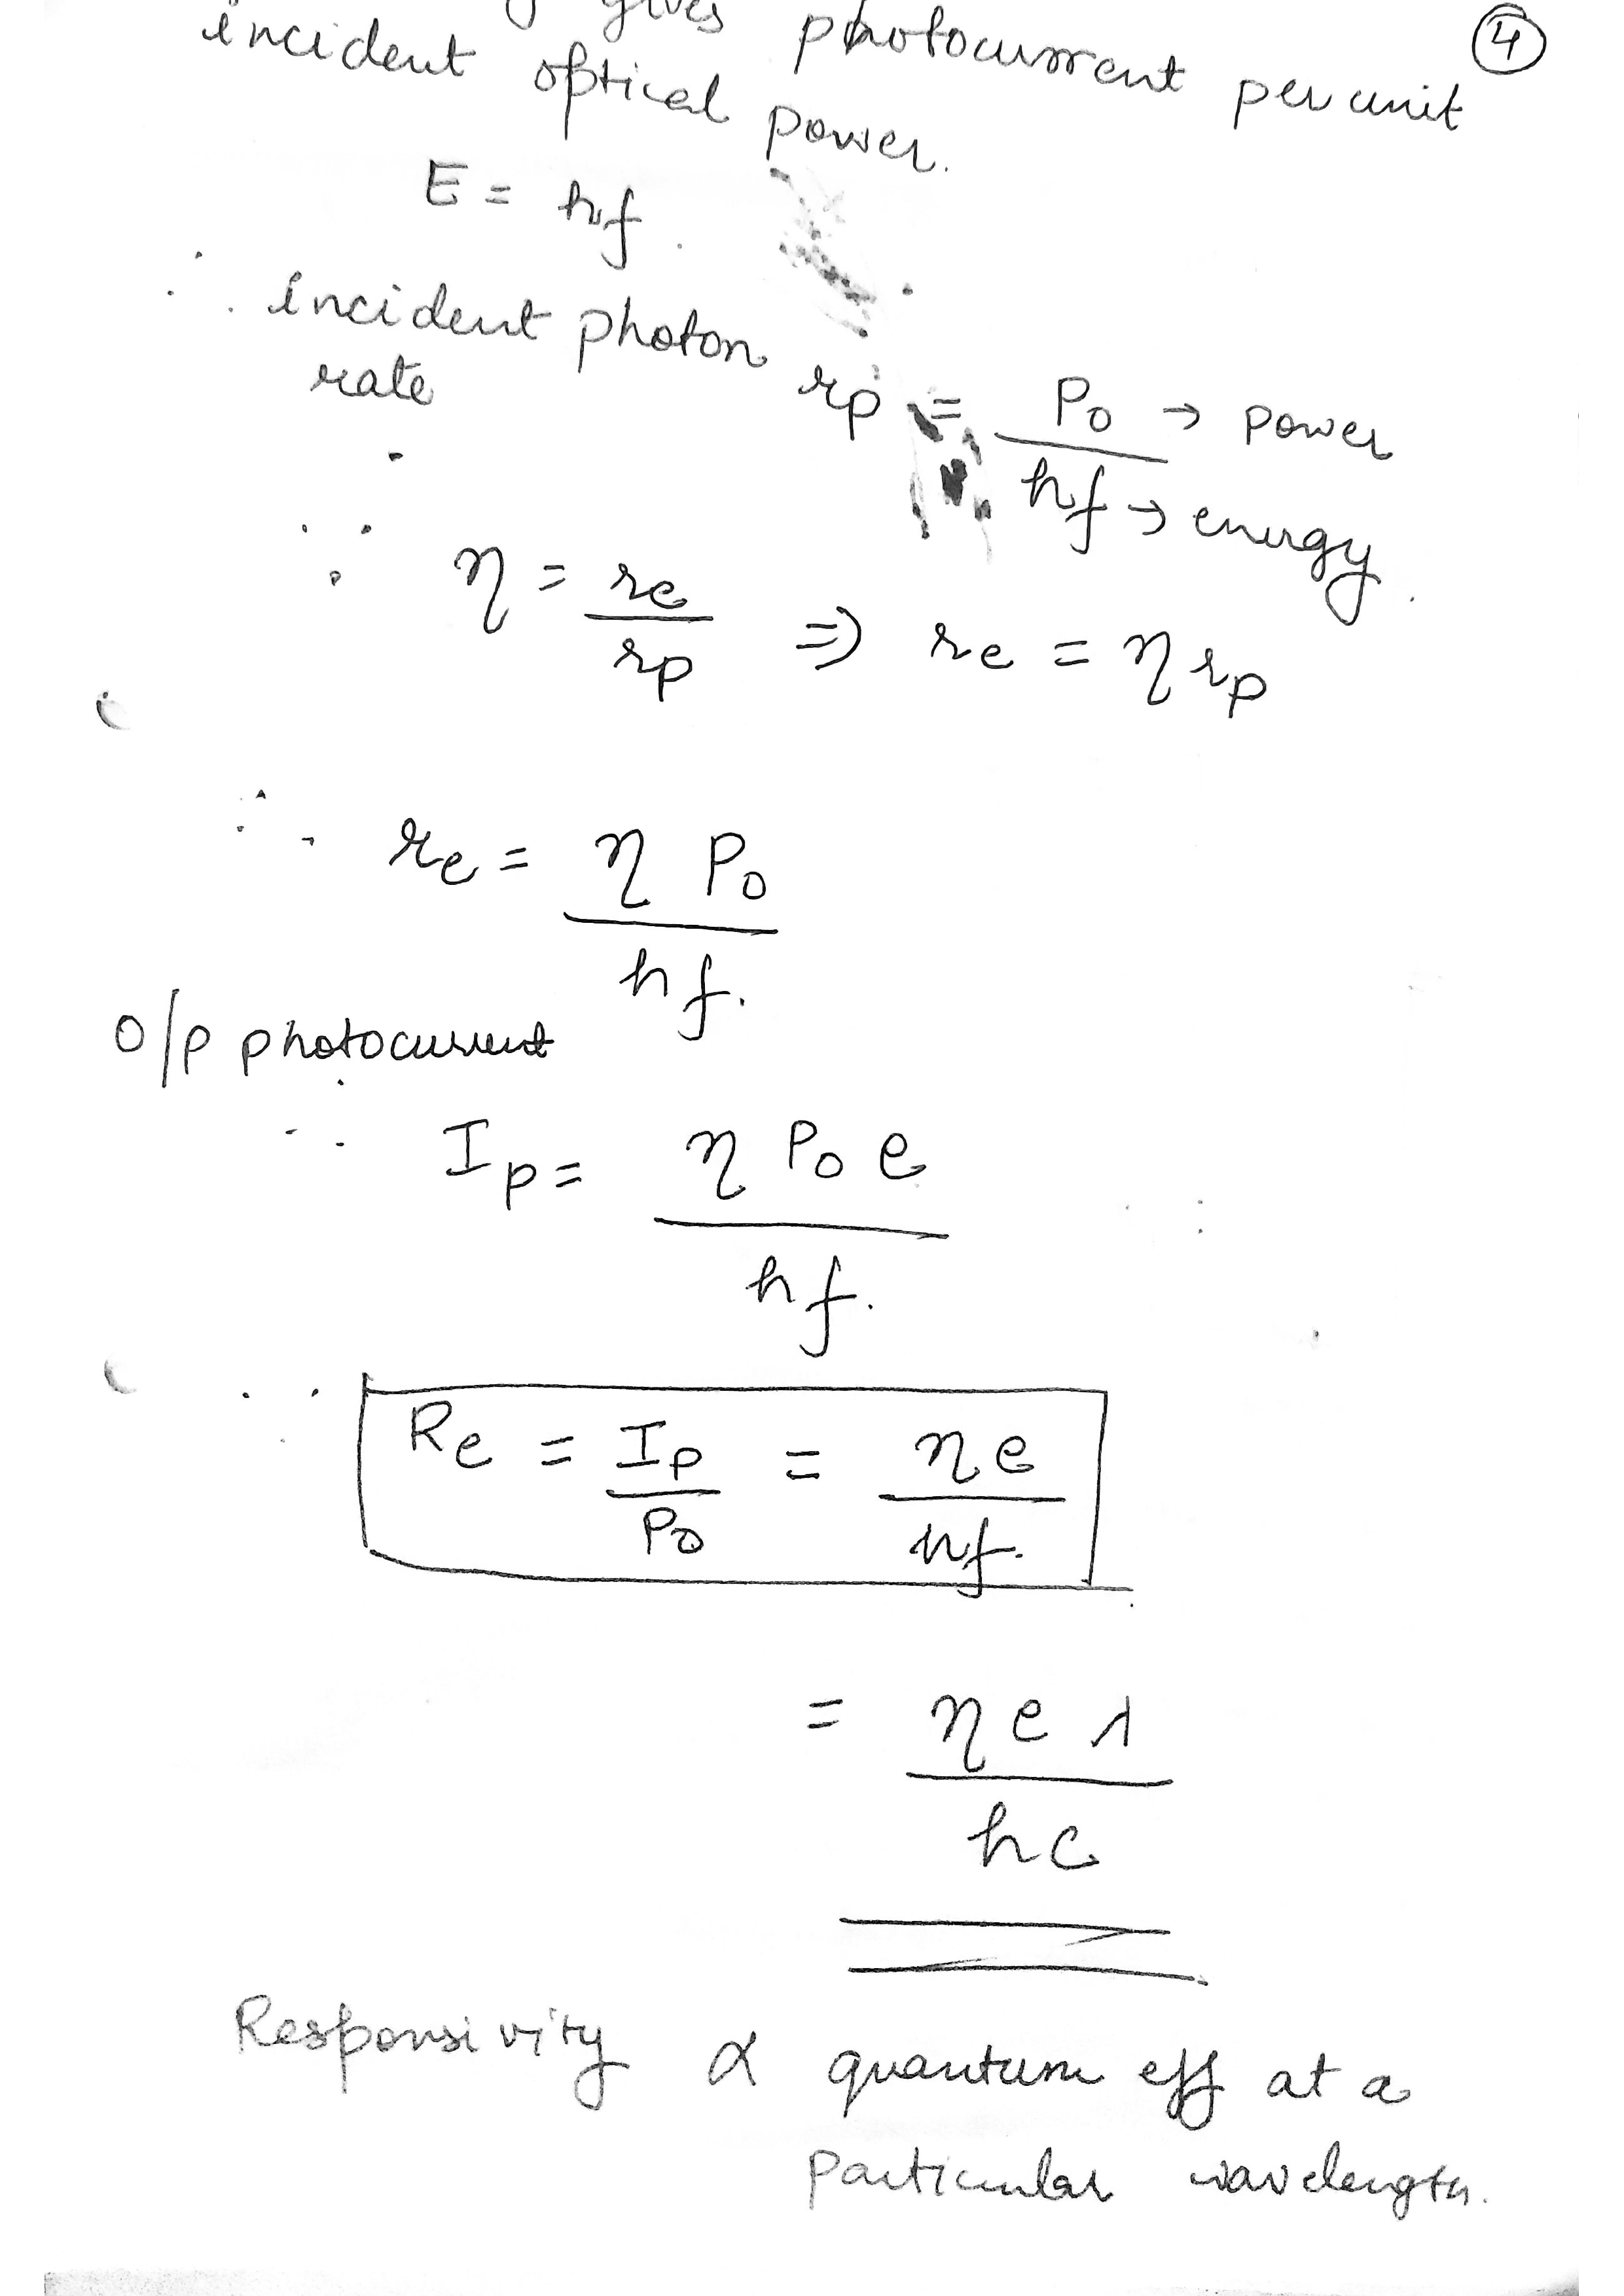 gives photocurrent per unit
④
incident optical power.
E = hf.
∴ incident photon
rate
rp = Po → power
hf → energy.
∴ η = re / rp ⇒ re = η rp
∴ re = η Po
hf.
o/p photocurrent
∴ Ip = η Po e
hf.
∴ Re = Ip / Po = η e / hf.
= η e λ
hc
Responsivity α quantum eff at a
particular wavelength.